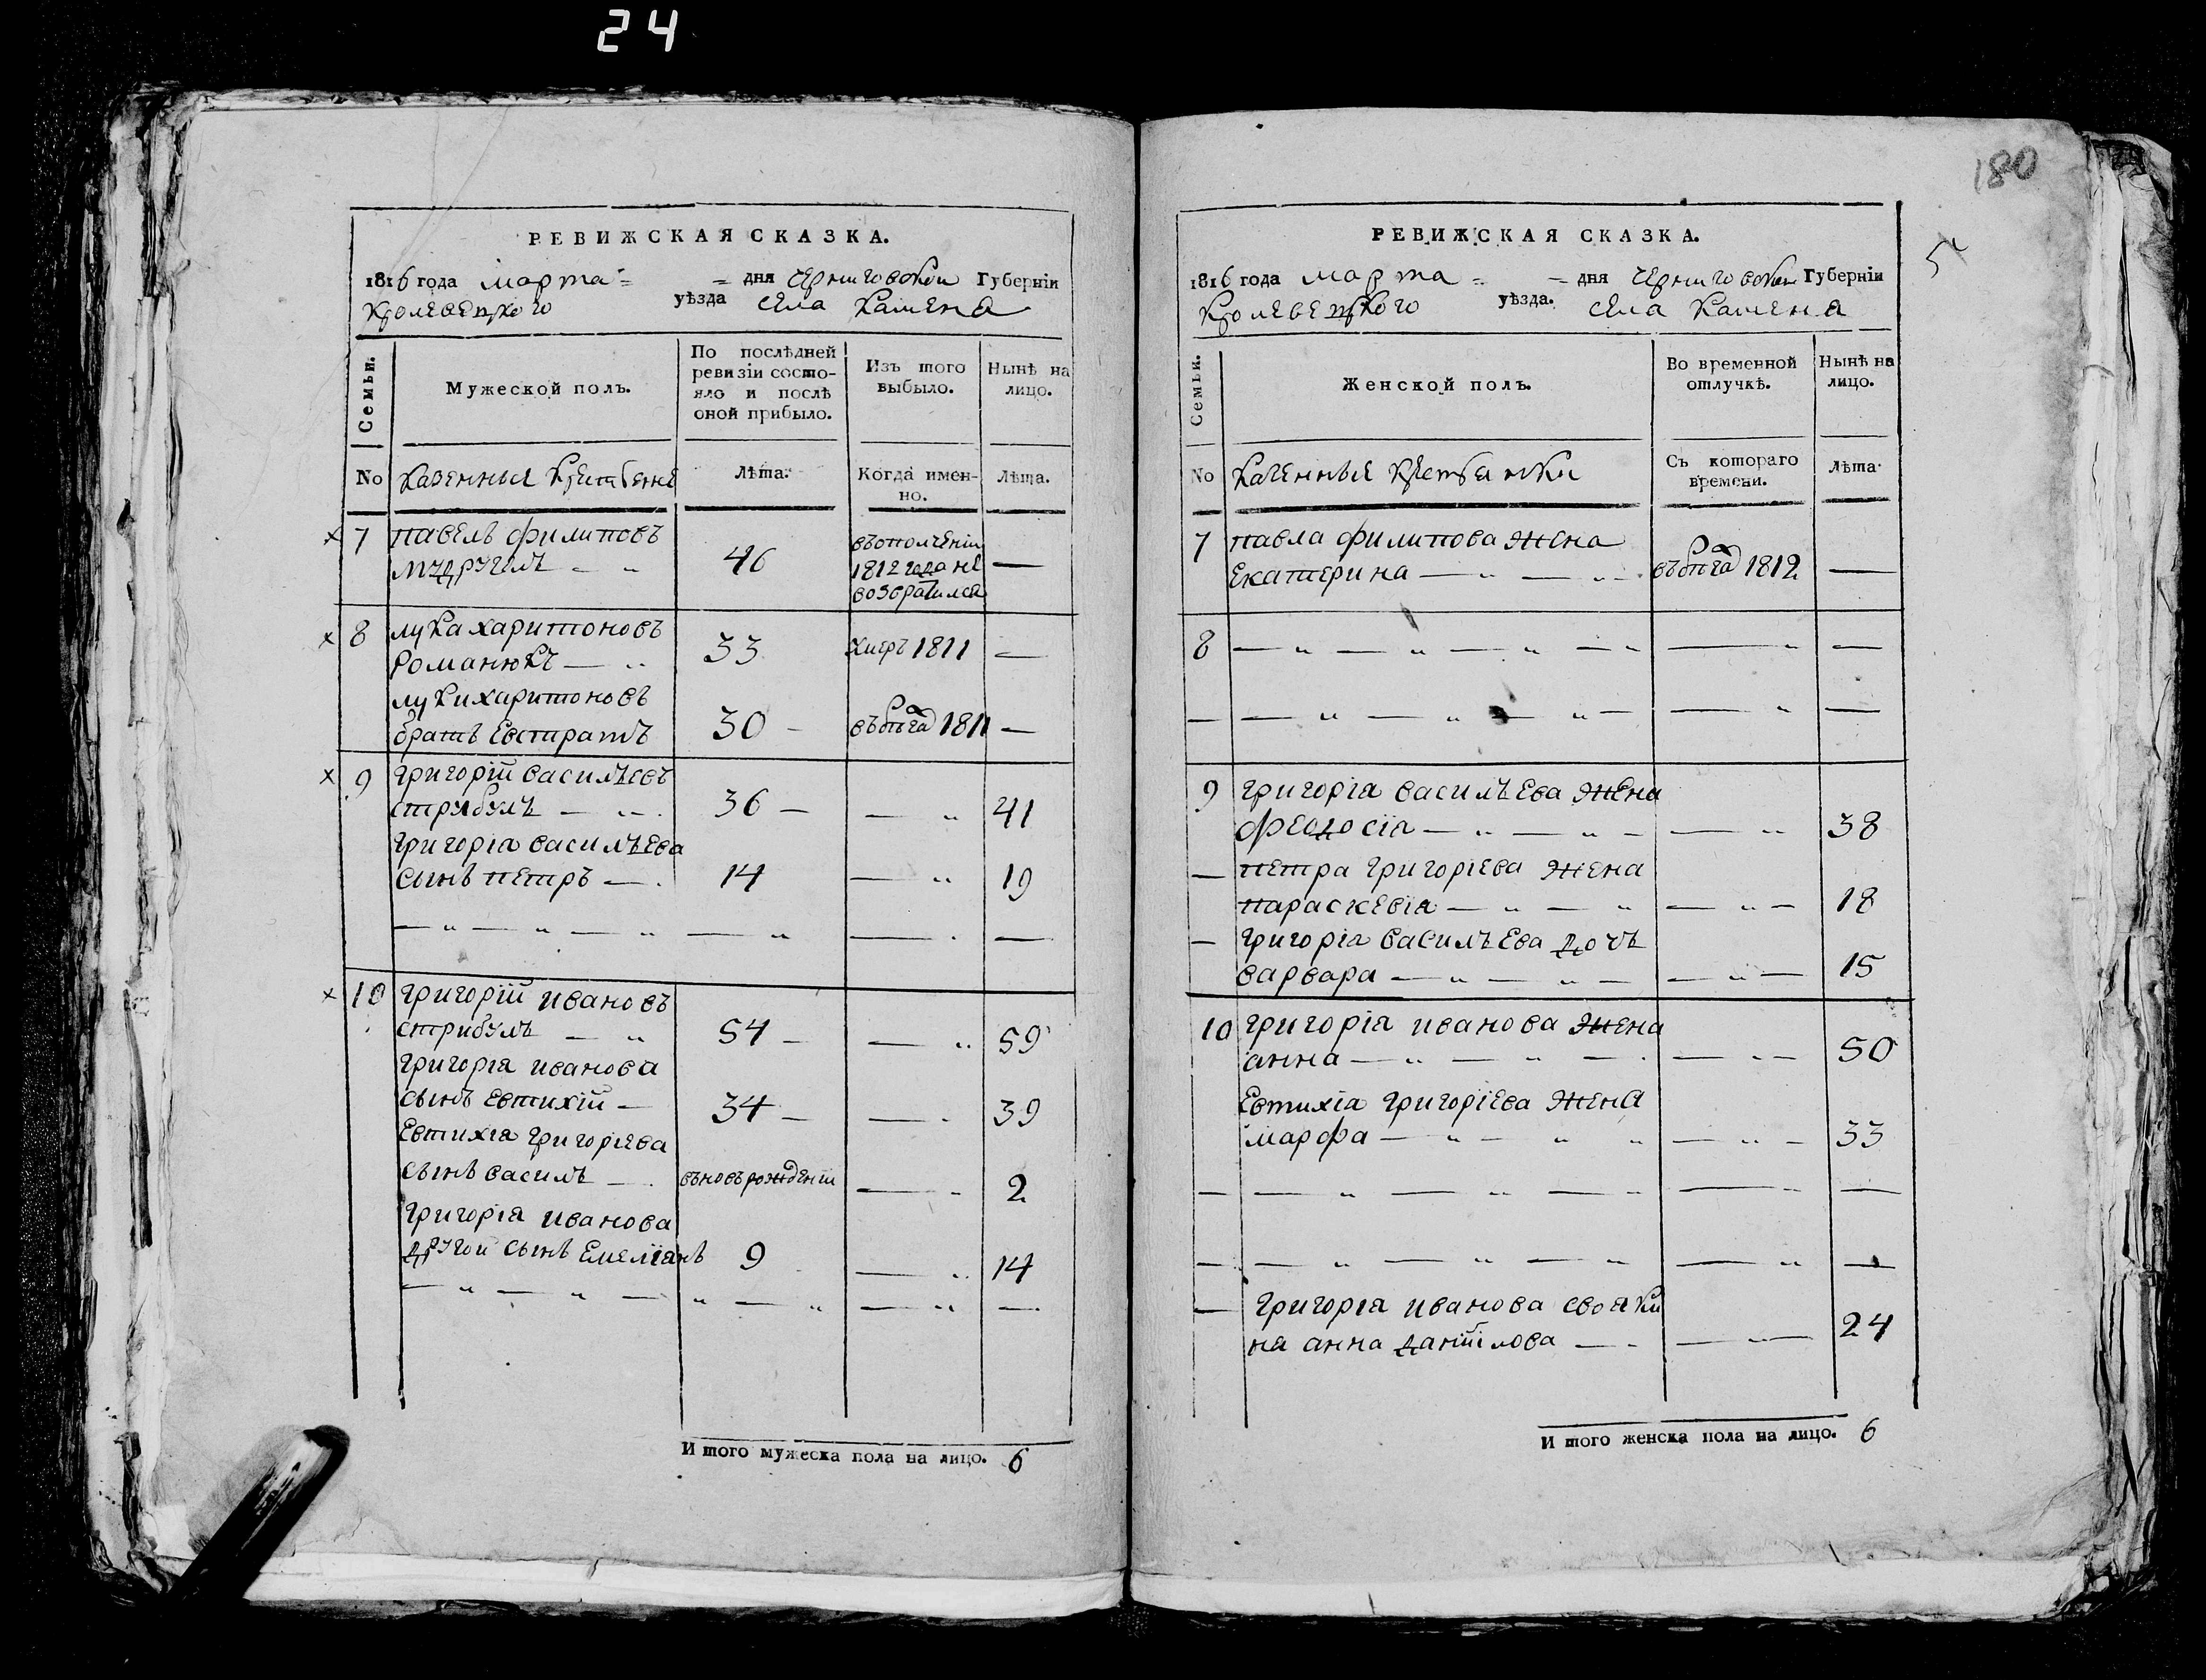 24
180
5
РЕВИЖСКАЯ СКАЗКА.
1816 года марта = = дня Черниговской Губерніи
Кролевецкого уѣзда села Каменя
Семьи.
Мужеской полъ.
По послѣдней
ревизіи состо-
яло и послѣ
оной прибыло.
Изъ того
выбыло.
Нынѣ на
лицо.
No
Лѣта.
Когда имен-
но.
Лѣта.
х 7 павелъ филиповъ
46
въополченіи
1812 года не
возвратился
—
х 8 лука харитоновъ
романюкъ — „ 33 Умеръ 1811 —
луки харитоновъ
братъ Евстратъ 30 - 1811 —
х 9 григорій василъевъ
стрибулъ — „ 36 — — „ 41
григорія василъева
сынъ петръ — 14 — „ 19
— „ — „ — „ — „ — —
х 10 григорій ивановъ
стрибулъ — „ 54 - — „ 59
григорія иванова
сынъ евтихій — 34 - — 39
Евтихія григоріева
сынъ василъ — въновърожденіи — 2
григорія иванова
другои сынъ Емеліянъ 9 — „ 14
— „ — „ — „ — „ — „ —
И того мужеска пола на лицо. 6
РЕВИЖСКАЯ СКАЗКА.
1816 года марта = = дня Черниговской Губерніи
Кролевецкого уѣзда. села Каменя
Семьи.
Женской полъ.
Во временной
отлучкѣ.
Нынѣ на
лицо.
No
Съ котораго
времени.
Лѣта
7 павла филипова жена
Екатерина — „ — „ 1812 —
8 — „ — „ — „ — „ — „ —
— — „ — „ — „ — — „ —
9 григорія василъева жена
феодосія — „ — „ — — „ 38
— петра григоріева жена
параскевія — „ — „ — „ — 18
— григорія василъева дочъ
варвара — „ — „ — — „ — 15
10 григорія иванова жена
анна — „ — „ — — „ — 50
Евтихія григоріева жена
марфа — „ — „ „ — „ — 33
— — „ — „ — „ — „ —
— — „ — „ — „ — „ —
— григорія иванова своячи
на анна даніилова — — „ — 24
И того женска пола на лицо. 6